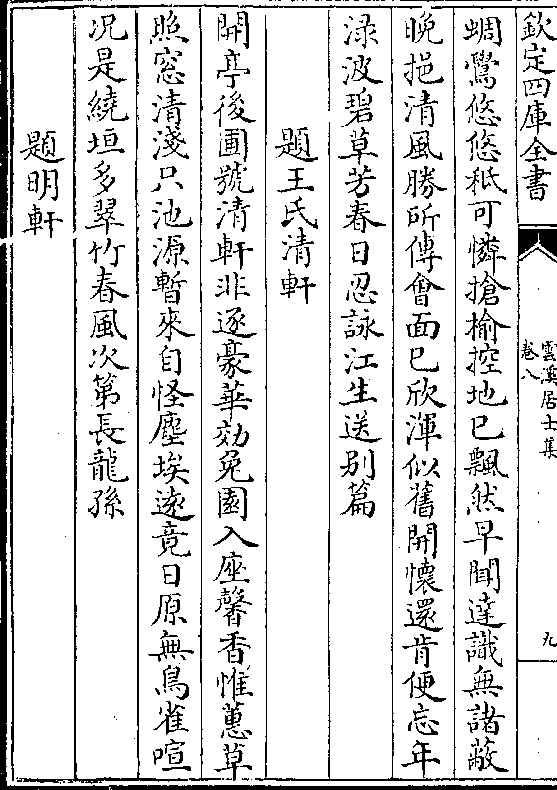 欽定四庫全書
雲溪居士集
卷八
九
蜩鷽悠悠秪可憐搶榆控地已飄然早聞達識無諸蔽
晚挹清風勝所傳會面已欣渾似舊開懷還肯便忘年
渌波碧草芳春日忍詠江生送别篇
題王氏清軒
開亭後圃號清軒非逐豪華効兔園入座馨香惟蕙草
照窓清淺只池源暫來自怪塵埃遠竟日原無鳥雀喧
况是繞垣多翠竹春風次第長龍孫
題明軒